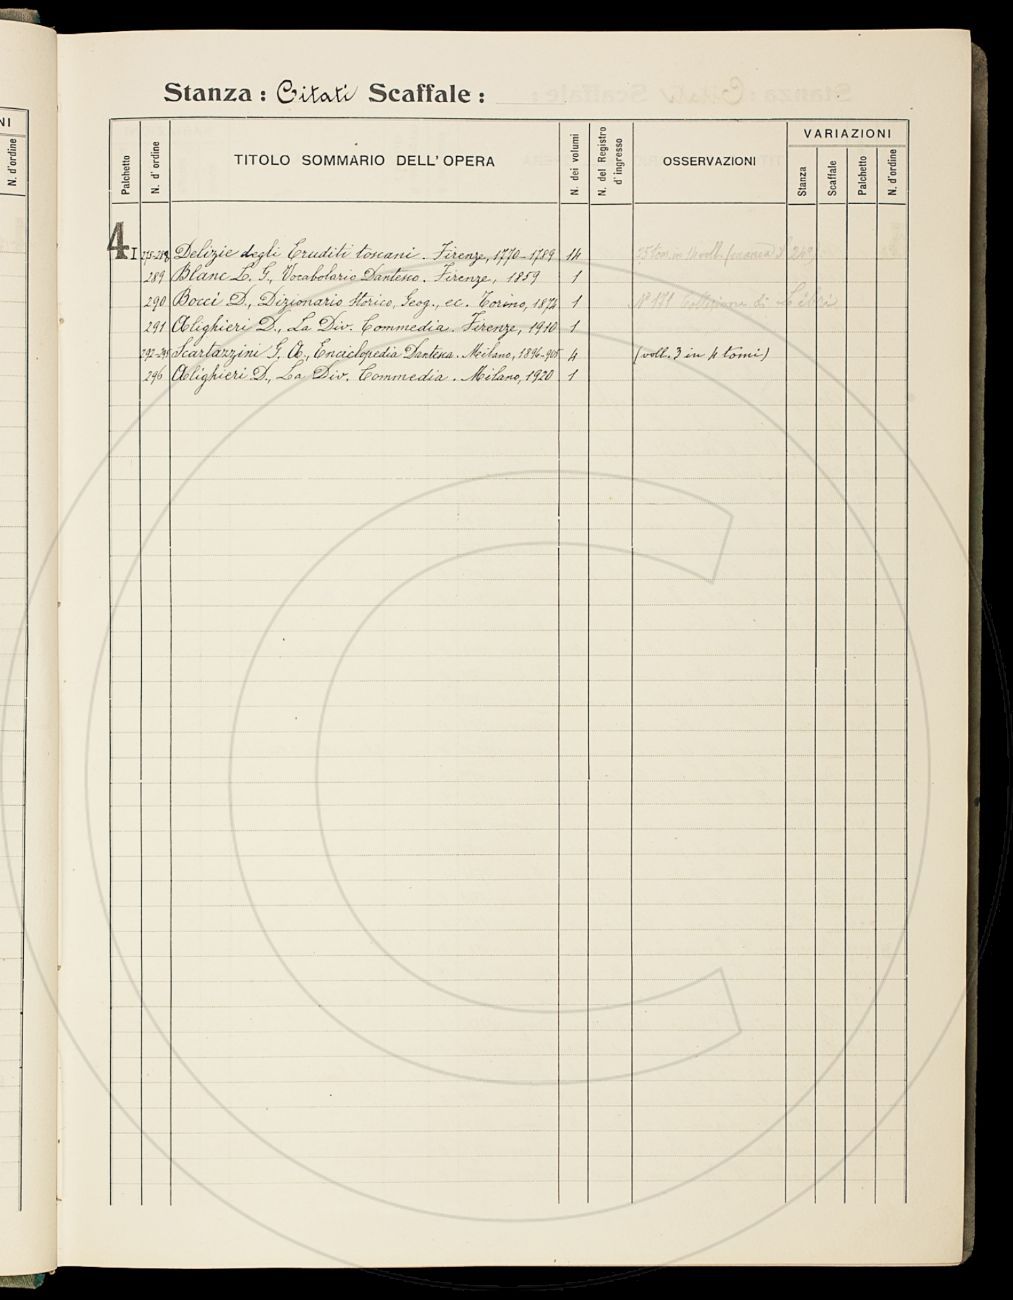 NI
N. d'ordine
Stanza : Citati Scaffale :
Palchetto
N. d'ordine
TITOLO SOMMARIO DELL'OPERA
N. dei volumi
N. del Registro d'ingresso
OSSERVAZIONI
VARIAZIONI
Stanza
Scaffale
Palchetto
N. d'ordine
4 I Delizie degli Eruditi toscani. Firenze, 1770-1789 14
289 Blanc L. G., Vocabolario Dantesco. Firenze, 1859 1
290 Bocci D., Dizionario Storico, Geog., ec. Torino, 1 N° 171
291 Alighieri D., La Div. Commedia. Firenze, 1910 1
292-295 Scartazzini G. A., Enciclopedia Dantesca. Milano, 1896-905 4 (voll. 3 in 4 tomi)
296 Alighieri D., La Div. Commedia. Milano, 1920 1